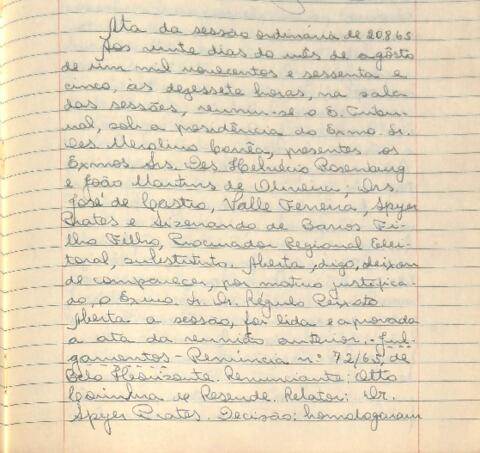 Ata da sessão ordinária de 20865
Aos vinte dias do mês de agôsto
de um mil novecentos e sessenta e
cinco, às dezessete horas, na sala
das sessões, reuniu-se o E. Tribu-
nal, sob a presidência do Exmo. Sr.
Des Merolino Corrêa, presentes os
Exmos Srs. Des Helvécio Rosenburg
e João Martins de Oliveira; Drs.
José de Castro, Valle Ferreira, Spyer
Prates e Sizenando de Barros Fi-
lho Filho, Procurador Regional Elei-
toral, substituto. Aberta, digo, deixou
de comparecer, por motivo justifica-
do, o Exmo Sr. Dr. Régulo Peixoto.
Aberta a sessão, foi lida e aprovada
a ata da reunião anterior. - Jul-
gamentos - Renúncia nº 72/65, de
Belo Horizonte. Renunciante: Otto
Coimbra de Resende. Relator: Dr.
Spyer Prates. Decisão: homologaram